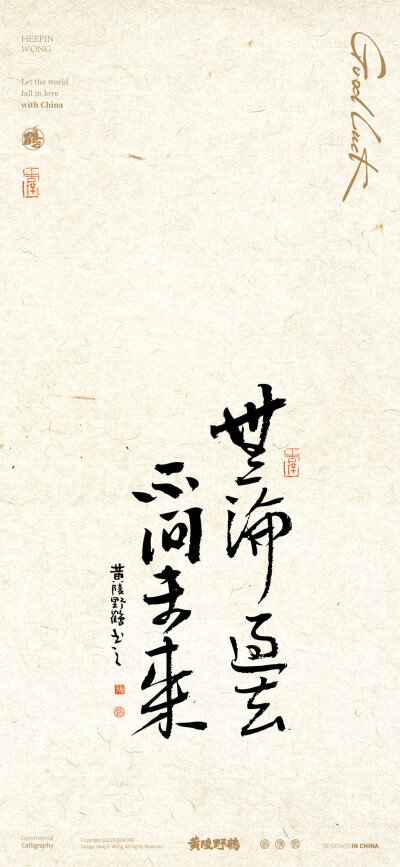 HEEPIN
WONG
Let the world
fall in love
with China
Good Luck
無論過去
不問未來
黄陵野鶴书之
Commercial
Calligraphy
Design Heepin Wong, All Rights Reserved
黄陵野鹤
DESIGNED IN CHINA